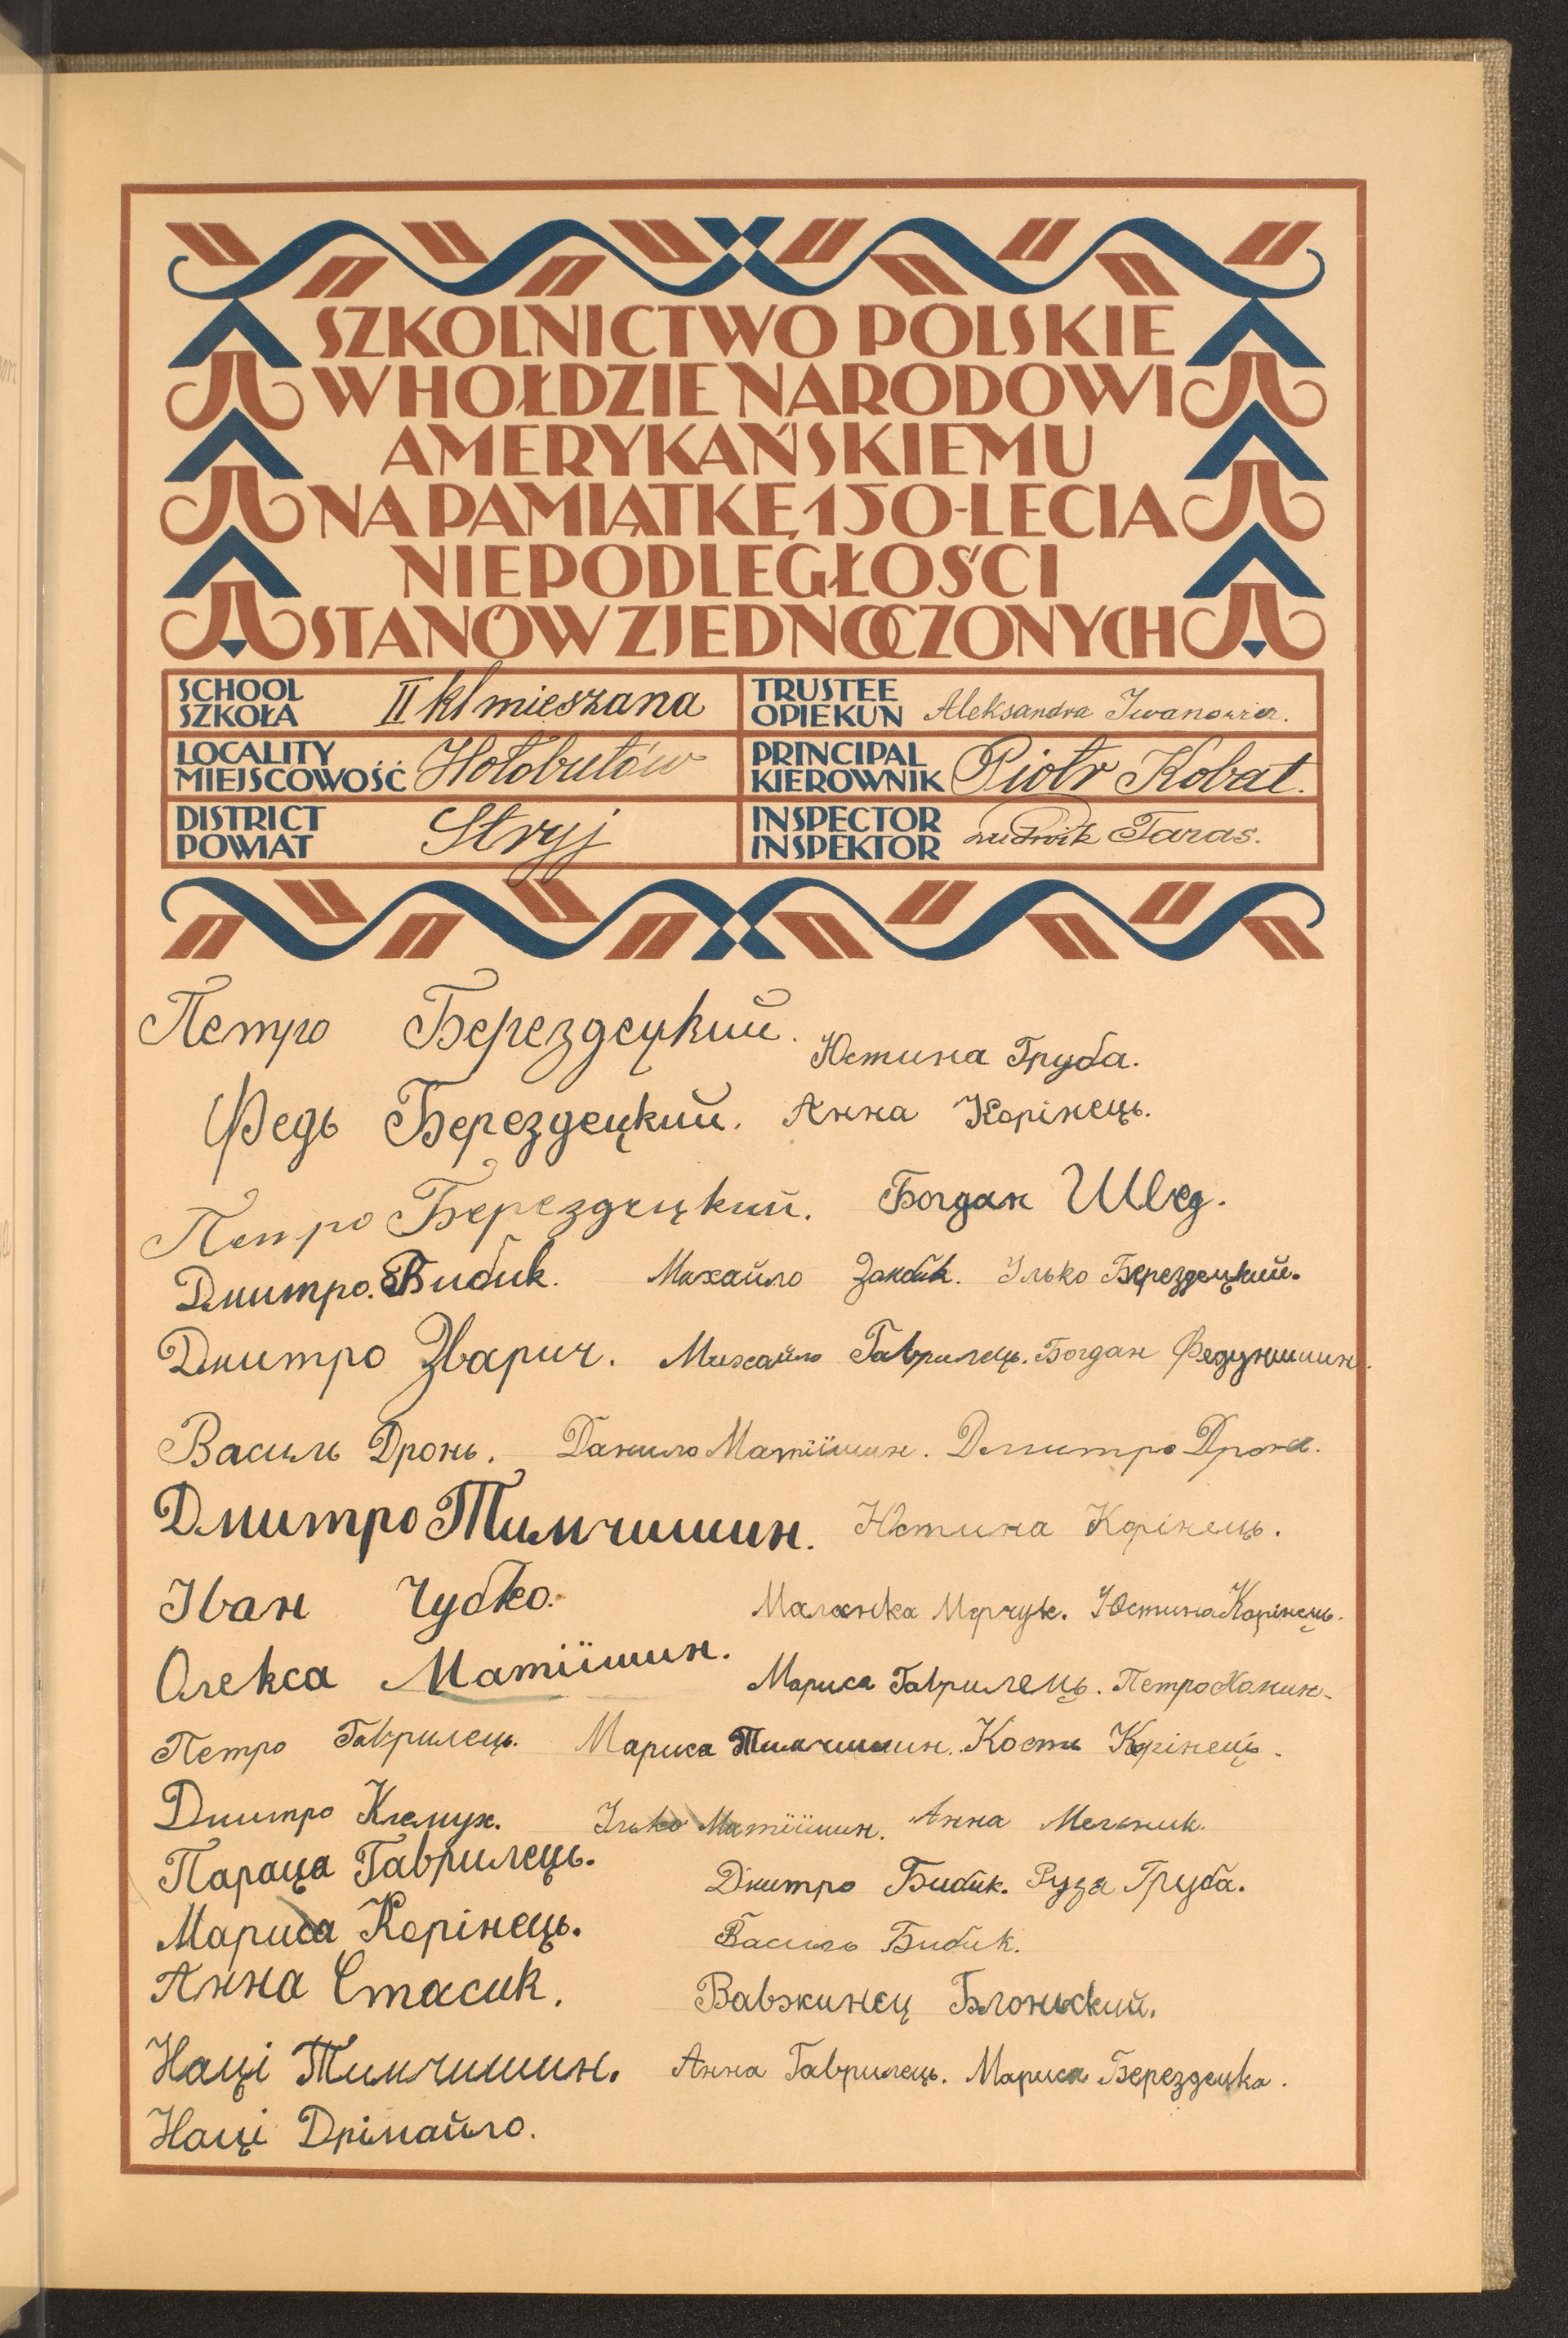 SZKOLNICTWO POLSKIE
W HOŁDZIE NARODOWI
AMERYKAŃSKIEMU
NA PAMIĄTKĘ 150-LECIA
NIEPODLEGŁOŚCI
STANÓW ZJEDNOCZONYCH
SCHOOL SZKOŁA II kl mieszana
TRUSTEE OPIEKUN Aleksandra Iwanowicz.
LOCALITY MIEJSCOWOŚĆ Hołobutów
PRINCIPAL KIEROWNIK Piotr Kobat.
DISTRICT POWIAT Stryj
INSPECTOR INSPEKTOR Ludwik Taras.
Петро Берездецкий. Юстина Груба.
Федь Берездецкий. Анна Корінець.
Петро Берездецкий. Богдан Швед.
Дмитро. Бибик. Михайло Ілько Берездецкий.
Дмитро Зварич. Михайло Гаврилець. Богдан Федунишин.
Василь Дронь. Данило Матіїшин. Дмитро Дронь.
Дмитро Тимчишин. Юстина Корінець.
Іван Чубко. Маланка Марчук. Юстина Корінець.
Олекса Матіїшин. Мариса Гаврилець. Петро Хомин.
Петро Гаврилець. Мариса Тимчишин. Кость Корінець.
Дмитро Клемух. Ілько Матіїшин. Анна Мельник.
Параца Гаврилець. Дмитро Бибик. Рузя Груба.
Мариса Корінець. Василь Бибик.
Анна Стасик. Вавжинец Блоньский.
Наці Тимчишин. Анна Гаврилець. Мариса Берездецка.
Наці Дрімайло.